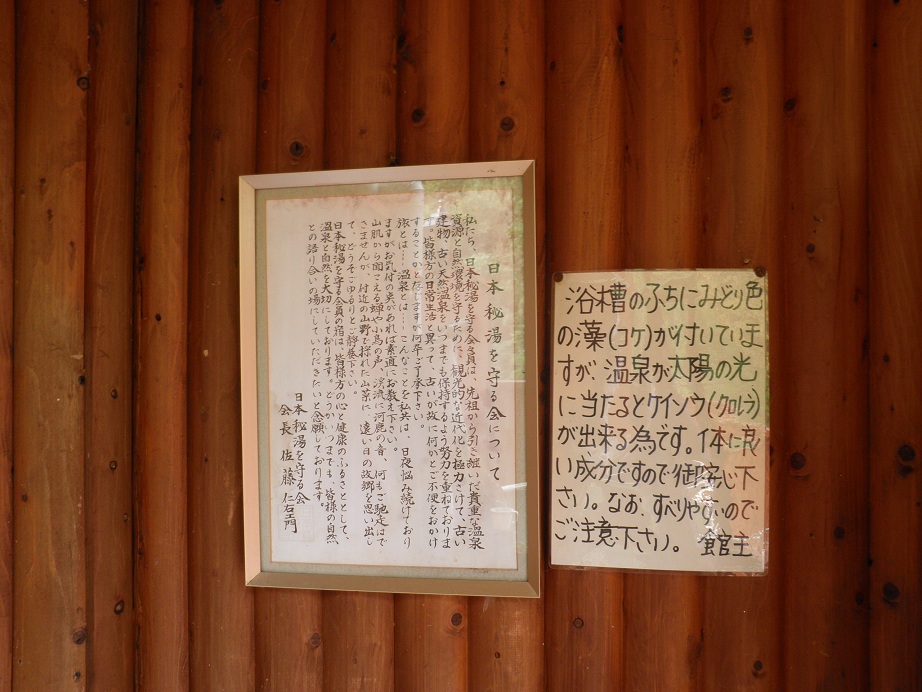 日本秘湯を守る会について
私たち、日本秘湯を守る会々員は、先祖から引き継いだ貴重な温泉
資源と自然環境を守るために、観光的な近代化を極力さけて、古い
建物、古い天然温泉をいつまでも保持するよう努力を重ねておりま
す。皆様方の日常生活と異って、古いが故に何かとご不便をおかけ
することかと存じますが何卒ご了承下さい。
旅とは…温泉とは…こんなことを私共は、日夜悩み続けており
ますがお気付の点があれば素直にお教え下さい。
山肌から聞こえる蝉や小鳥の声、渓流に河鹿の音、何もご馳走はで
きませんが、付近の山野で採れた山菜に、遠い日の故郷を思い出し
て、どうぞごゆるりとご静養下さい。
日本秘湯を守る会員の宿は、皆様方の心と健康のふるさととして、
温泉と自然を大切にしております。どうかいつまでも、皆様の自然
との語り合いの場にしていただきたいと念願しております。
日本秘湯を守る会
会長 佐藤仁右エ門
浴槽のふちにみどり色
の藻(コケ)が付いていま
すが、温泉が太陽の光
に当たるとケイソウ(クロレラ)
が出来る為です。体に良
い成分ですので御安心下
さい。なお、すべりやすいので
ご注意下さい。 館主